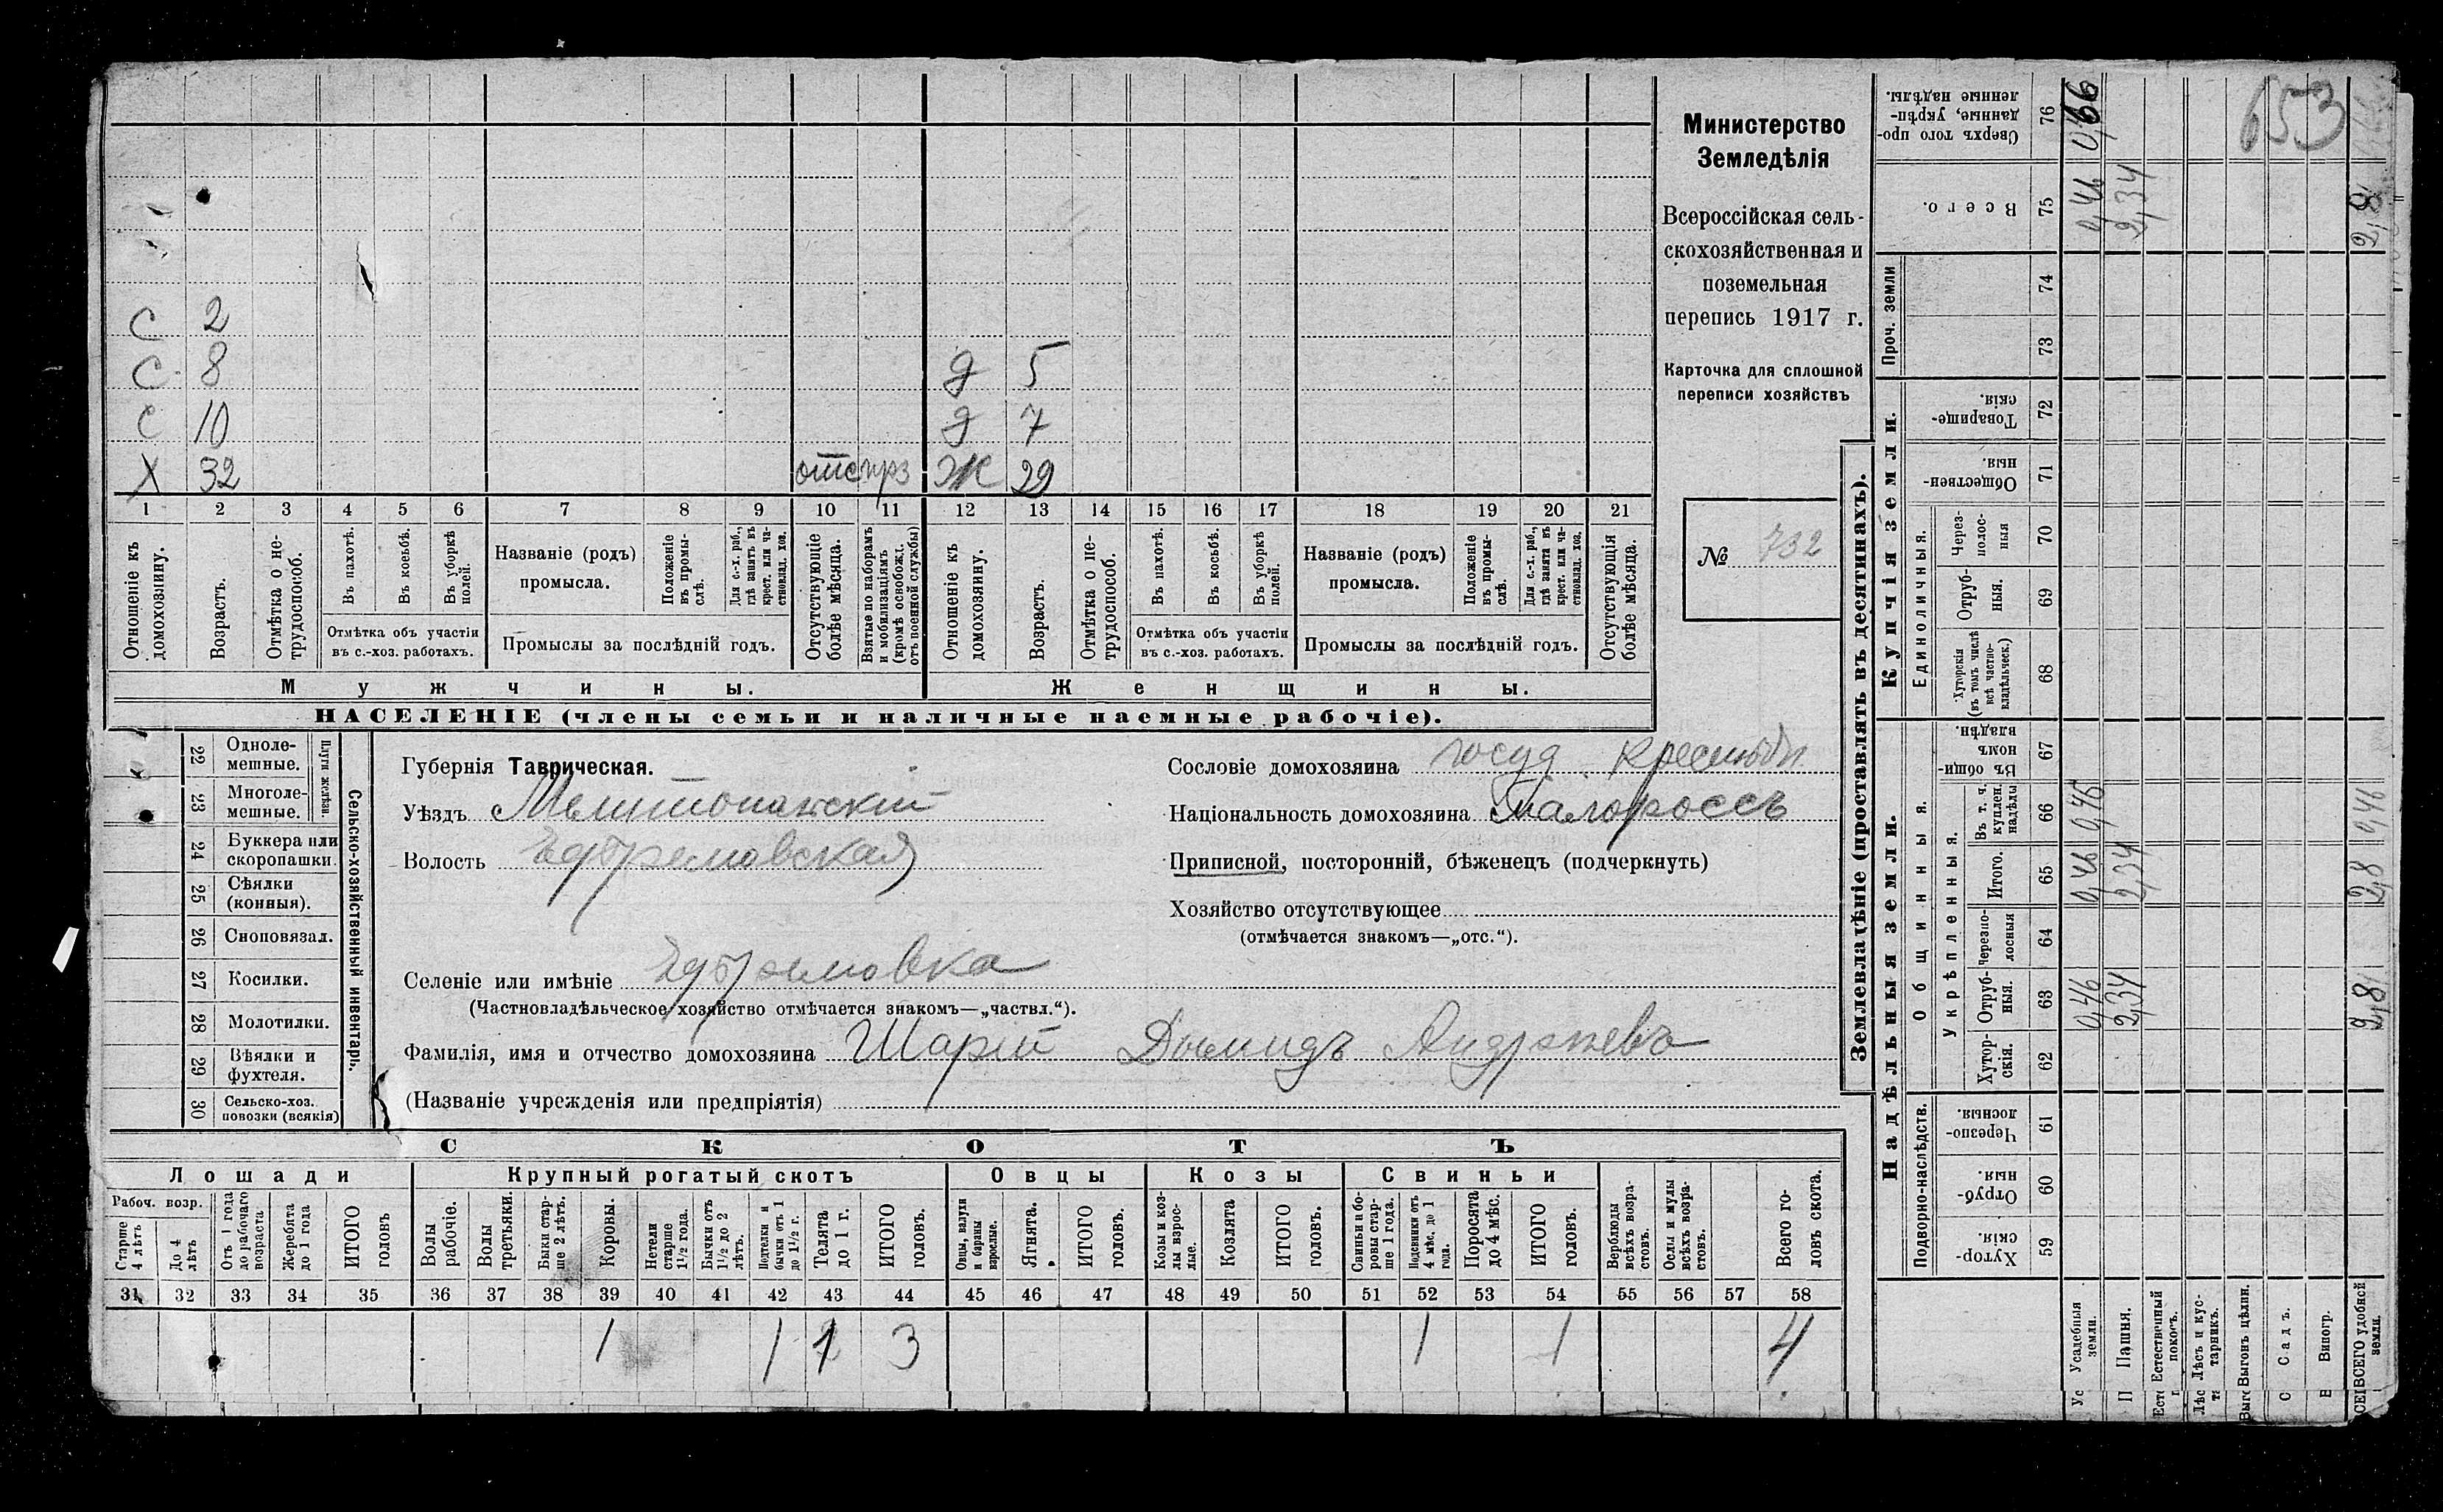 653
С 2
С 8
д 5
С 10
д 7
Х 32 отс прз Ж 29
1 2 3 4 5 6 7 8 9 10 11 12 13 14 15 16 17 18 19 20 21
Отношеніе къ домохозяину.
Возрастъ.
Отмѣтка о нетрудоспособ.
Въ пахотѣ.
Въ косьбѣ.
Въ уборкѣ полей.
Отмѣтка объ участіи
въ с.-хоз. работахъ.
Названіе (родъ)
промысла.
Положеніе въ промыслѣ.
Для с.-х. раб., гдѣ занятъ въ крест. или частновлад. хоз.
Промыслы за послѣдній годъ.
Отсутствующіе болѣе мѣсяца.
Взятые по наборамъ и мобилизаціямъ (кромѣ освобожд. отъ военной службы)
Отношеніе къ домохозяину.
Возрастъ.
Отмѣтка о нетрудоспособ.
Въ пахотѣ.
Въ косьбѣ.
Въ уборкѣ полей.
Отмѣтка объ участіи
въ с.-хоз. работахъ.
Названіе (родъ)
промысла.
Положеніе въ промыслѣ.
Для с.-х. раб., гдѣ занята въ крест. или частновлад. хоз.
Промыслы за послѣдній годъ.
Отсутствующія болѣе мѣсяца.
Мужчины.
Женщины.
НАСЕЛЕНІЕ (члены семьи и наличные наемные рабочіе).
Министерство
Земледѣлія
Всероссійская сель-
скохозяйственная и
поземельная
перепись 1917 г.
Карточка для сплошной
переписи хозяйствъ
№ 732
Сельско-хозяйственный инвентарь.
Плуги желѣзн.
22 Одноле-
мешные.
23 Многоле-
мешные.
24 Буккера или
скоропашки.
25 Сѣялки
(конныя).
26 Сноповязал.
27 Косилки.
28 Молотилки.
29 Вѣялки и
фухтеля.
30 Сельско-хоз.
повозки (всякія)
Губернія Таврическая.
Уѣздъ Мелитопольскій
Волость Ефремовская
Селеніе или имѣніе Ефремовка
(Частновладѣльческое хозяйство отмѣчается знакомъ—„частвл.“).
Фамилія, имя и отчество домохозяина Шарій Діомидъ Андреевъ
(Названіе учрежденія или предпріятія)
Сословіе домохозяина госуд. крестьян
Національность домохозяина малороссъ
Приписной, посторонній, бѣженецъ (подчеркнуть)
Хозяйство отсутствующее
(отмѣчается знакомъ—„отс.“).
СКОТЪ
Лошади
Крупный рогатый скотъ
Овцы
Козы
Свиньи
Рабоч. возр.
Старше 4 лѣтъ
До 4 лѣтъ
Отъ 1 года до рабочаго возраста
Жеребята до 1 года
ИТОГО головъ
Волы рабочіе.
Волы третьяки.
Быки старше 2 лѣтъ.
Коровы.
Нетели старше 1½ года.
Бычки отъ 1½ до 2 лѣтъ.
Подтелки и бычки отъ 1 до 1½ г.
Телята до 1 г.
ИТОГО головъ.
Овцы, валухи и бараны взрослые.
Ягнята.
ИТОГО головъ.
Козы и козлы взрослые.
Козлята
ИТОГО головъ.
Свиньи и боровы старше 1 года.
Подсвинки отъ 4 мѣс. до 1 года.
Поросята до 4 мѣс.
ИТОГО головъ.
Верблюды всѣхъ возрастовъ.
Ослы и мулы всѣхъ возрастовъ.
Всего головъ скота.
31 32 33 34 35 36 37 38 39 40 41 42 43 44 45 46 47 48 49 50 51 52 53 54 55 56 57 58
1 1 1 3 1 1 4
Землевладѣніе (проставлять въ десятинахъ).
Надѣльныя земли.
Купчія земли.
Проч. земли
Подворно-наслѣдств.
Общинныя.
Укрѣпленныя.
Единоличныя.
Хуторскія. 59
Отрубныя. 60
Черезполосныя. 61
Хуторскія. 62
Отрубныя. 63
Черезполосныя 64
Итого. 65
Въ т. ч. куплен. надѣлы 66
Въ общинномъ владѣн. 67
Хуторскія (въ томъ числѣ всѣ частновладѣльческ.) 68
Отрубныя. 69
Черезполосныя 70
Общественныя. 71
Товарищескія. 72
73
74
Всего. 75
Сверхъ того проданные, укрѣпленные надѣлы. 76
Усадебныя земли. 0,46 0,46 0,46 0,46
Пашня. 2,34 2,34 2,34
Естественный покосъ.
Лѣсъ и кустарникъ.
Выгонъ цѣлин.
Садъ.
Виногр.
ВСЕГО удобной земли. 2,8 2,8 0,46 2,8